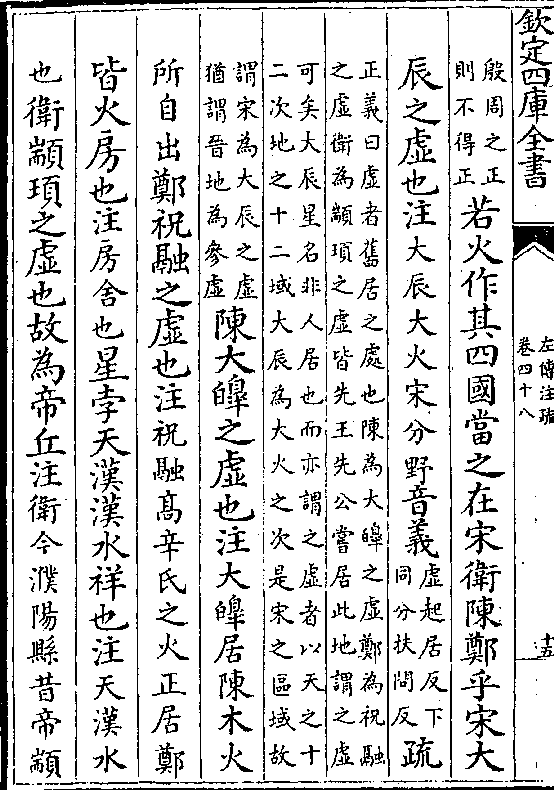 欽定四庫全書
左傳注疏
卷四十八
十五
殷周之正
則不得正
若火作其四國當之在宋衛陳鄭乎宋大
辰之虛也注大辰大火宋分野音義
虛起居反下
同分扶問反
疏
正義曰虛者舊居之處也陳為大皥之虛鄭為祝融
之虛衛為顓頊之虛皆先王先公嘗居此地謂之虛
可矣大辰星名非人居也而亦謂之虛者以天之十
二次地之十二域大辰為大火之次是宋之區域故
謂宋為大辰之虛
猶謂晉地為參虛
陳大皥之虛也注大皥居陳木火
所自出鄭祝融之虛也注祝融髙辛氏之火正居鄭
皆火房也注房舍也星孛天漢漢水祥也注天漢水
也衛顓頊之虛也故為帝丘注衛今濮陽縣昔帝顓